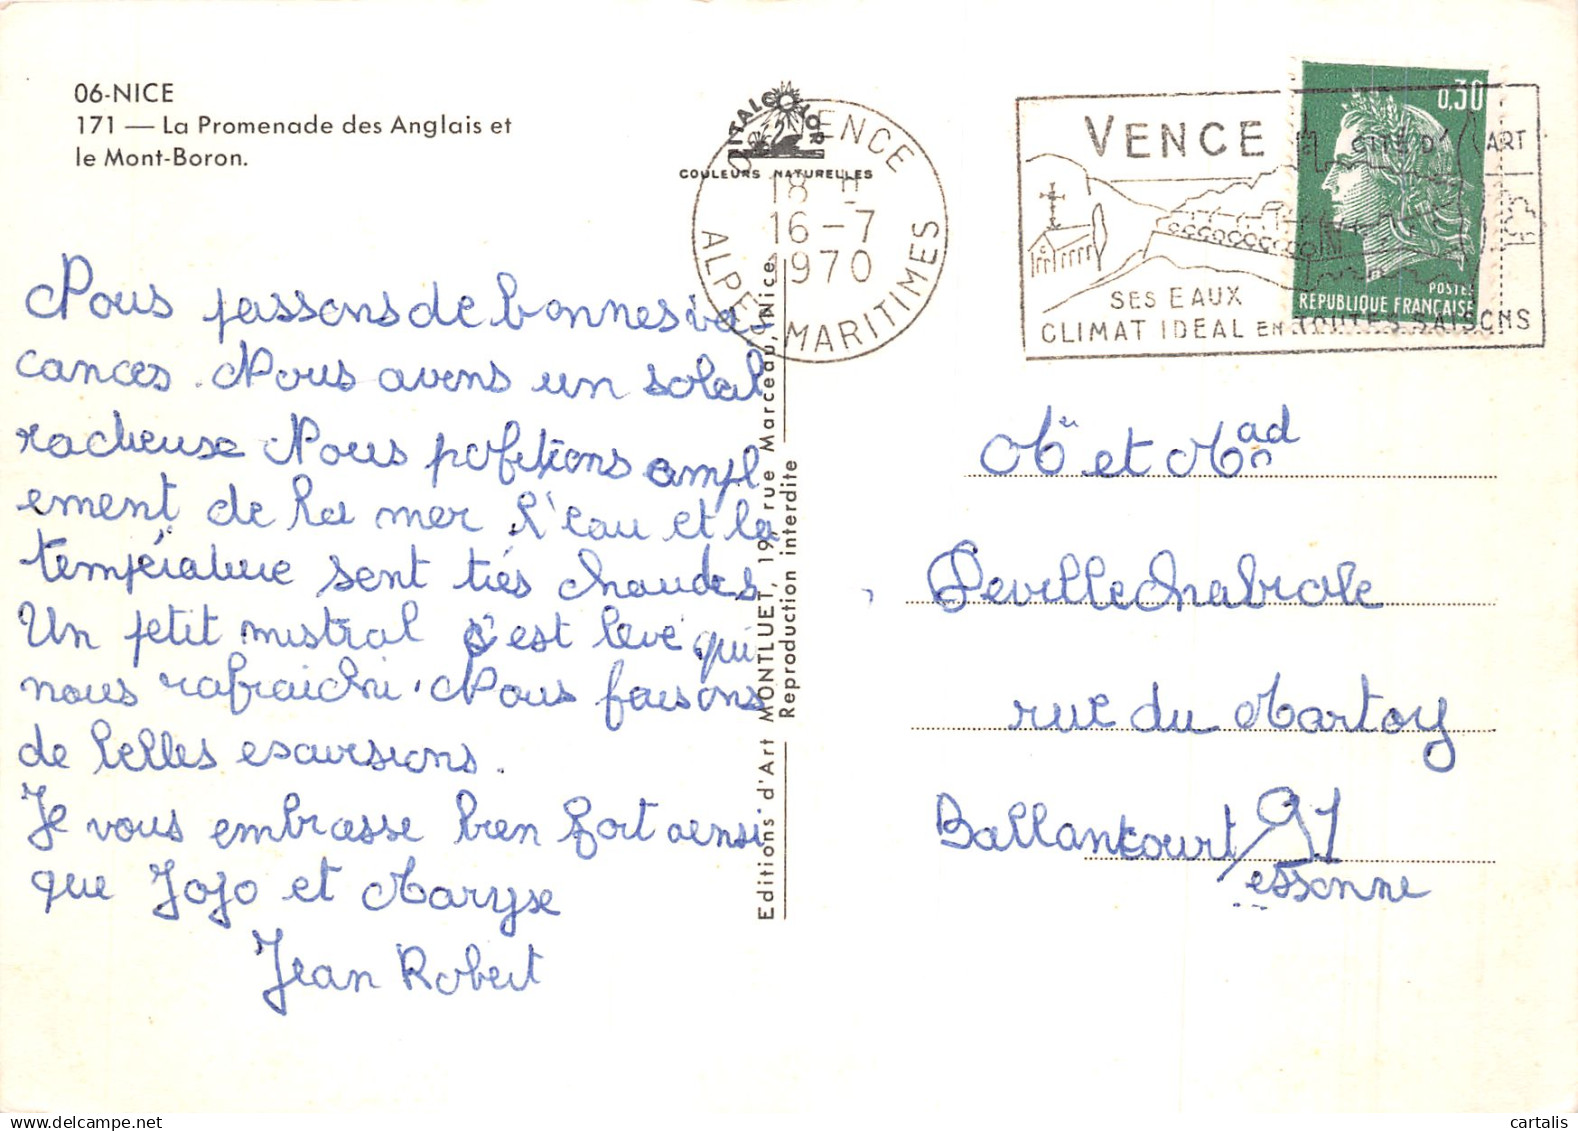 06-NICE
171 — La Promenade des Anglais et
le Mont-Boron.
Nous passons de bonnes va-
cances. Nous avons un soleil
radieuse Nous profitions ampl
ement de la mer, l'eau et la
température sont très chaudes
Un petit mistral s'est levé qui
nous rafraichi. Nous faisons
de belles escursions.
Je vous embrasse bien fort ainsi
que Jojo et Maryse
Jean Robert
ITALCOLOR
COULEURS NATURELLES
VENCE
18 H
16-7
1970
ALPES MARITIMES
Editions d'Art MONTLUET, 19, rue Marceau, Nice
Reproduction interdite
VENCE CITÉ D'ART
SES EAUX
CLIMAT IDEAL EN TOUTES SAISONS
0,30
POSTES
REPUBLIQUE FRANÇAISE
Mr et Mad
Deville Chabrole
rue du Martoy
Ballancourt / 91
essonne
cartalis
www.delcampe.net